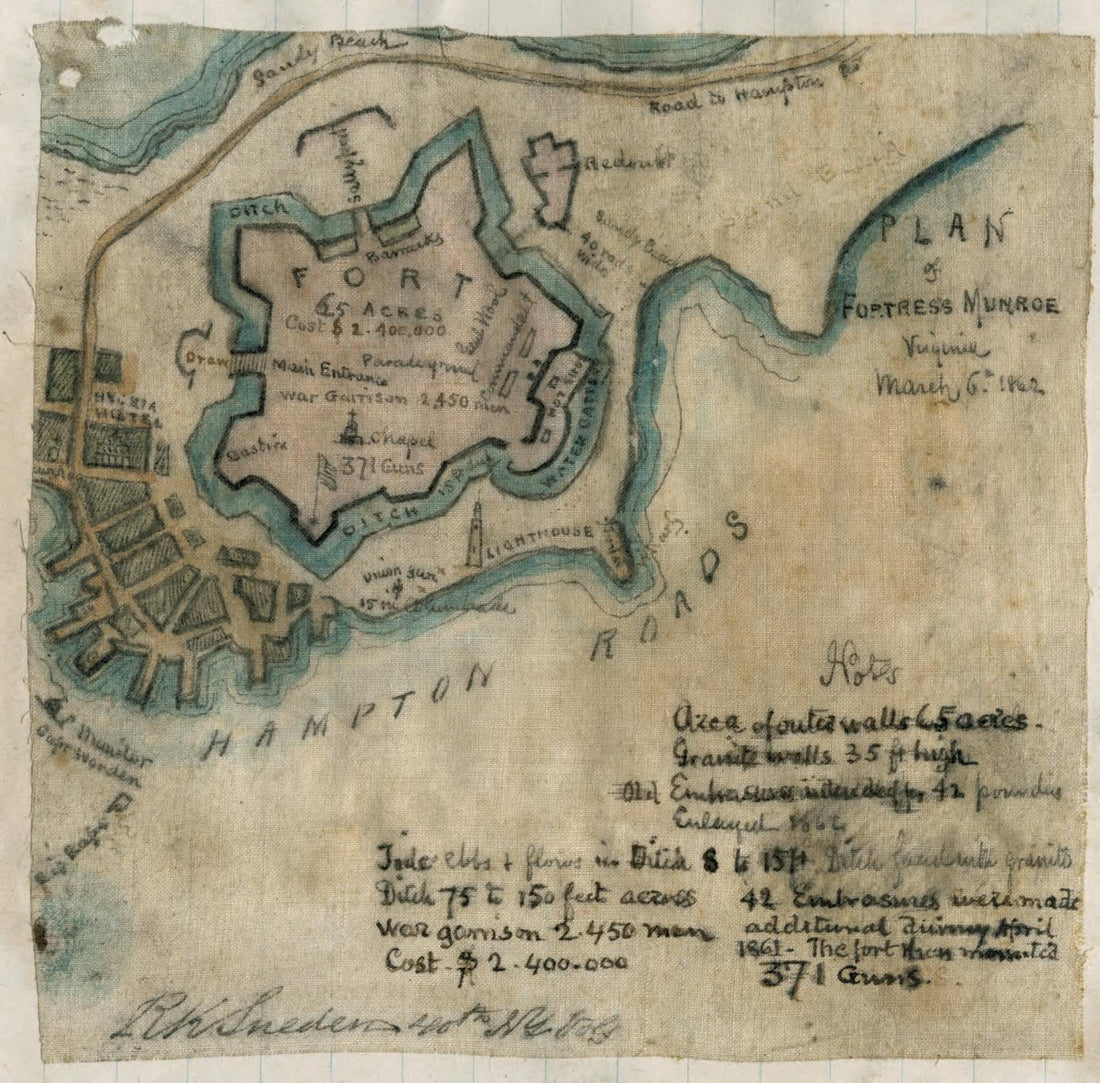 Sandy Beach
Road to Hampton
Redoubt
DITCH
Barracks
Sandy Beach
40 rods
wide
FORT
65 ACRES
Cost $ 2.400.000
Draw
Main Entrance
Parade ground
war Garrison 2450 men
HYGEIA
HOTEL
Bastion
Chapel
371 Guns
WATER BATTERY
DITCH
LIGHTHOUSE
Union Gun
15 in
HAMPTON ROADS
PLAN
of
FORTRESS MUNROE
Virginia
March 6th 1862
Monitor
Capt Worden
Rip Raps
Notes
Area of outer walls 65 acres.
Granite walls 35 ft high
Old Embrasures intended for 42 pounders
Enlarged 1862
Tide ebbs & flows in Ditch 8 to 15 ft Ditch faced with granite
Ditch 75 to 150 feet across
war garrison 2.450 men
Cost $ 2.400.000
42 Embrasures were made
additional during April
1861 - The fort then mounted
371 Guns.
RK Sneden 40th NY Vol